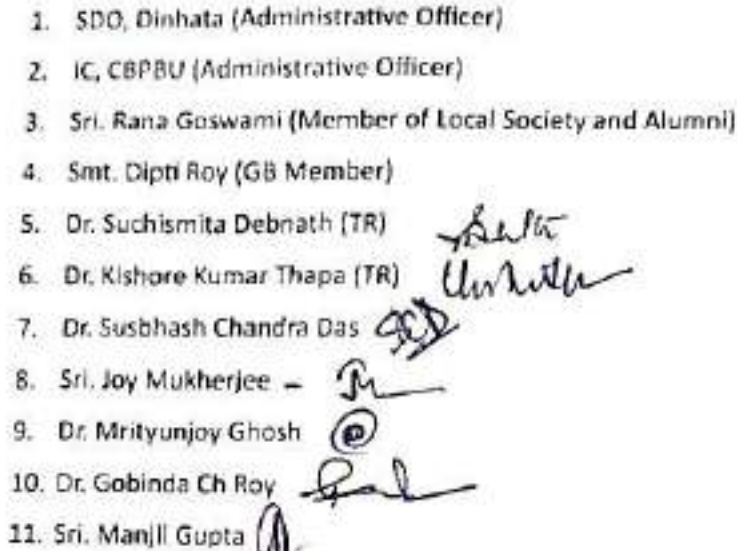 1. SDO, Dinhata (Administrative Officer)
2. IC, CBPBU (Administrative Officer)
3. Sri. Rana Goswami (Member of Local Society and Alumni)
4. Smt. Dipti Roy (GB Member)
5. Dr. Suchismita Debnath (TR)
6. Dr. Kishore Kumar Thapa (TR)
7. Dr. Susbhash Chandra Das SCD
8. Sri. Joy Mukherjee –
9. Dr. Mrityunjoy Ghosh
10. Dr. Gobinda Ch Roy
11. Sri. Manjil Gupta